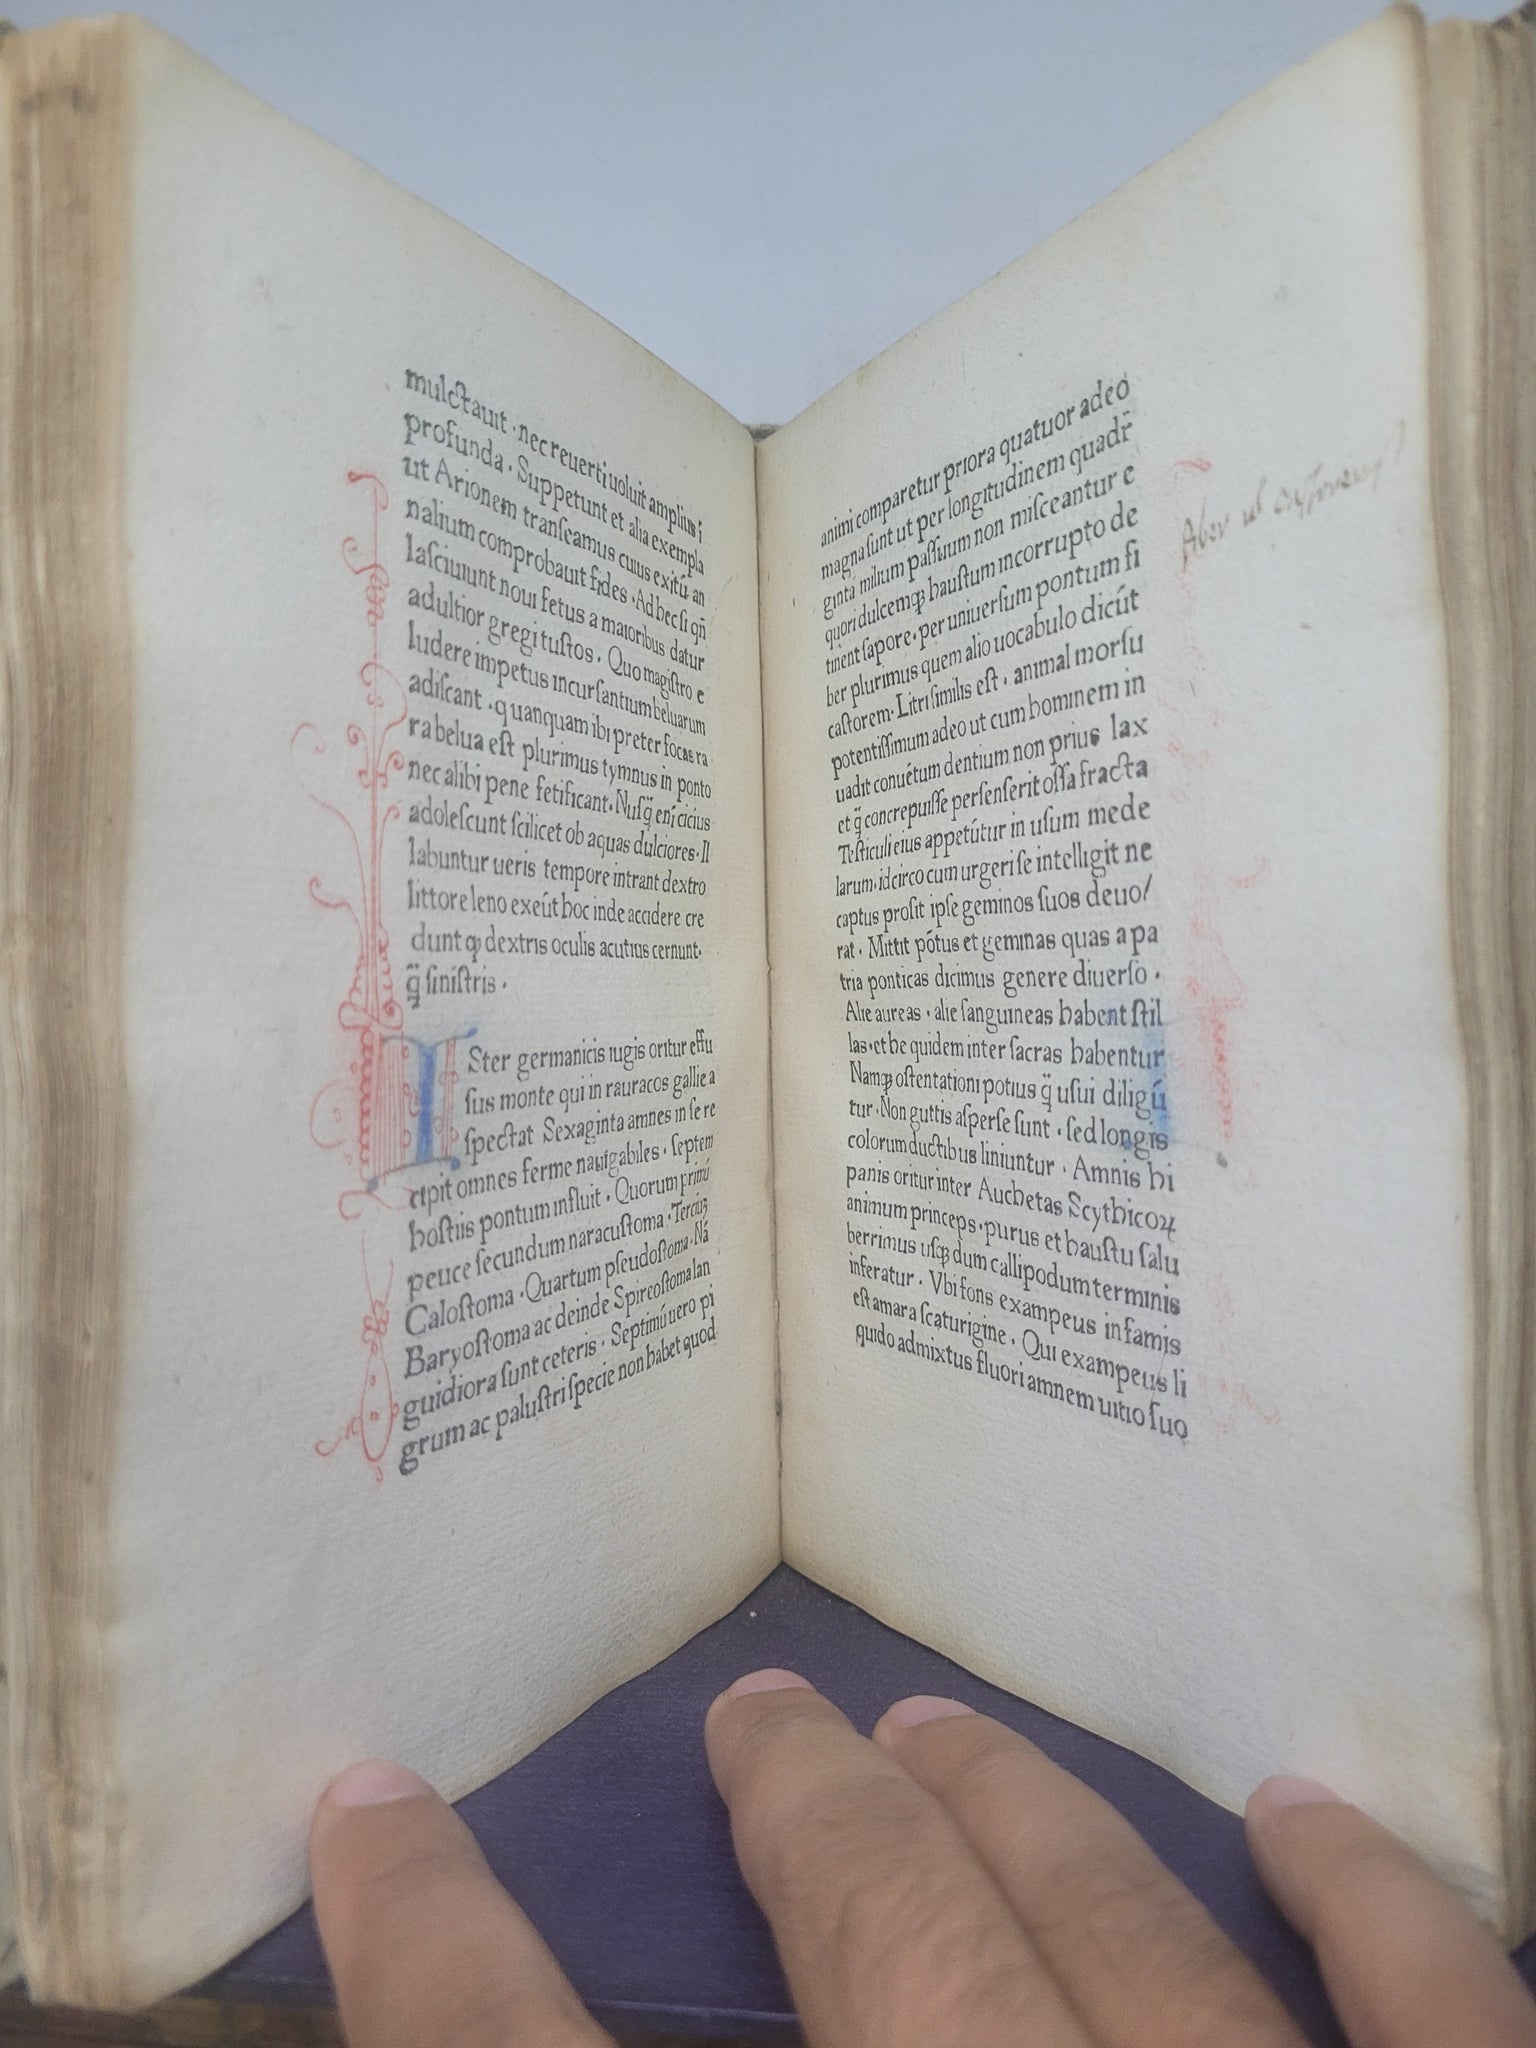 mulctauit · nec reuerti uoluit amplius ĩ
profunda · Suppetunt et alia exempla
ut Arionem tranſeamus cuius exitũ an
nalium comprobauit fides · Ad hec ſi qñ
laſciuiunt noui fetus a maioribus datur
adultior gregi tuſtos · Quo magiſtro e
ludere impetus incurſantium beluarum
adiſcant · quanquam ibi preter focas ra
ra belua eſt plurimus tymnus in ponto
nec alibi pene fetificant · Nuſq̃ enĩ cicius
adoleſcunt ſcilicet ob aquas dulciores · Il
labuntur ueris tempore intrant dextro
littore leno exeũt hoc inde accidere cre
dunt ꝙ dextris oculis acutius cernunt·
q̃ ſiniſtris ·
ISter germanicis iugis oritur effu
ſus monte qui in rauracos gallie a
ſpectat Sexaginta amnes in ſe re
cipit omnes ferme nauigabiles · ſeptem
hoſtiis pontum influit · Quorum primũ
peuce ſecundum naracuſtoma · Terciuʒ
Caloſtoma · Quartum pſeudoſtoma · Nã
Baryoſtoma ac deinde Spireoſtoma lan
guidiora ſunt ceteris · Septimũ uero pi
grum ac paluſtri ſpecie non habet quod
animi comparetur priora quatuor adeo
magna ſunt ut per longitudinem quadr̃
ginta milium paſſuum non miſceantur e
quori dulcemqꝫ hauſtum incorrupto de
tinent ſapore · per uniuerſum pontum fi
ber plurimus quem alio uocabulo dicũt
caſtorem · Litri ſimilis eſt · animal morſu
potentiſſimum adeo ut cum hominem in
uadit conuẽtum dentium non prius lax
et q̃ concrepuiſſe perſenſerit oſſa fracta
Teſticuli eius appetũtur in uſum mede
larum · idcirco cum urgeri ſe intelligit ne
captus proſit ipſe geminos ſuos deuo/
rat · Mittit põtus et geminas quas a pa
tria ponticas dicimus genere diuerſo ·
Alie aureas · alie ſanguineas habent ſtil
las · et he quidem inter ſacras habentur
Namqꝫ oſtentationi potius q̃ uſui diligũ
tur · Non guttis aſperſe ſunt · ſed longis
colorum ductibus liniuntur · Amnis hi
panis oritur inter Auchetas Scythicoꝝ
animum princeps · purus et hauſtu ſalu
berrimus uſqꝫ dum callipodum terminis
inferatur · Vbi fons exampeus infamis
eſt amara ſcaturigine · Qui exampeus li
quido admixtus fluori amnem uitio ſuo
fiber ul